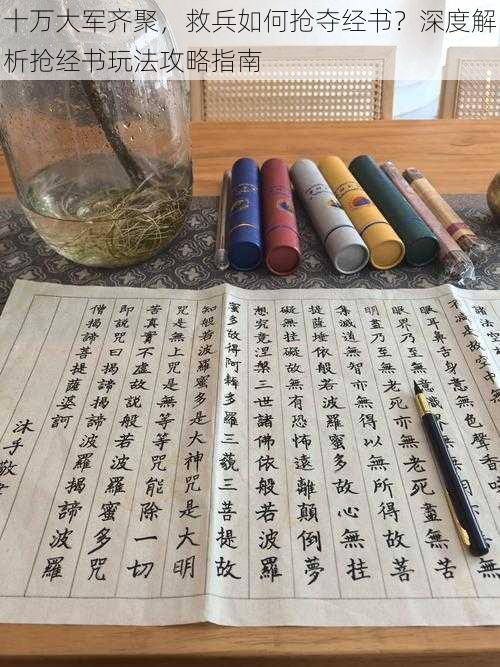 十万大军齐聚，救兵如何抢夺经书？深度解
析抢经书玩法攻略指南
諸法空
不減是故空中無色聲香
眼耳鼻舌身意無
眼界乃至無意識
明盡乃至無老死亦無老死盡無苦
集滅道無智亦無得以無所得故菩
提薩埵依般若波羅蜜多故心無挂
礙無挂礙故無有恐怖遠離顛倒夢
想究竟涅槃三世諸佛依般若波羅
蜜多故得阿耨多羅三藐三菩提故
知般若波羅蜜多是大神咒是大明
咒是無上咒是無等等咒能除一切
苦真實不虛故說般若波羅蜜多咒
即說咒曰揭諦揭諦波羅揭諦波羅
僧揭諦菩提薩婆訶
沐手敬